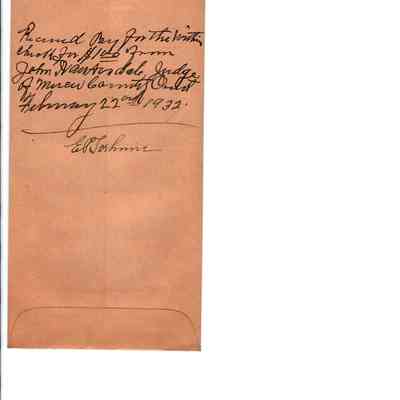 Received Pay for the within
check for $1.00 from
John D. Judge
of Mercer County Court
February 22nd 1932.
E P Terhune